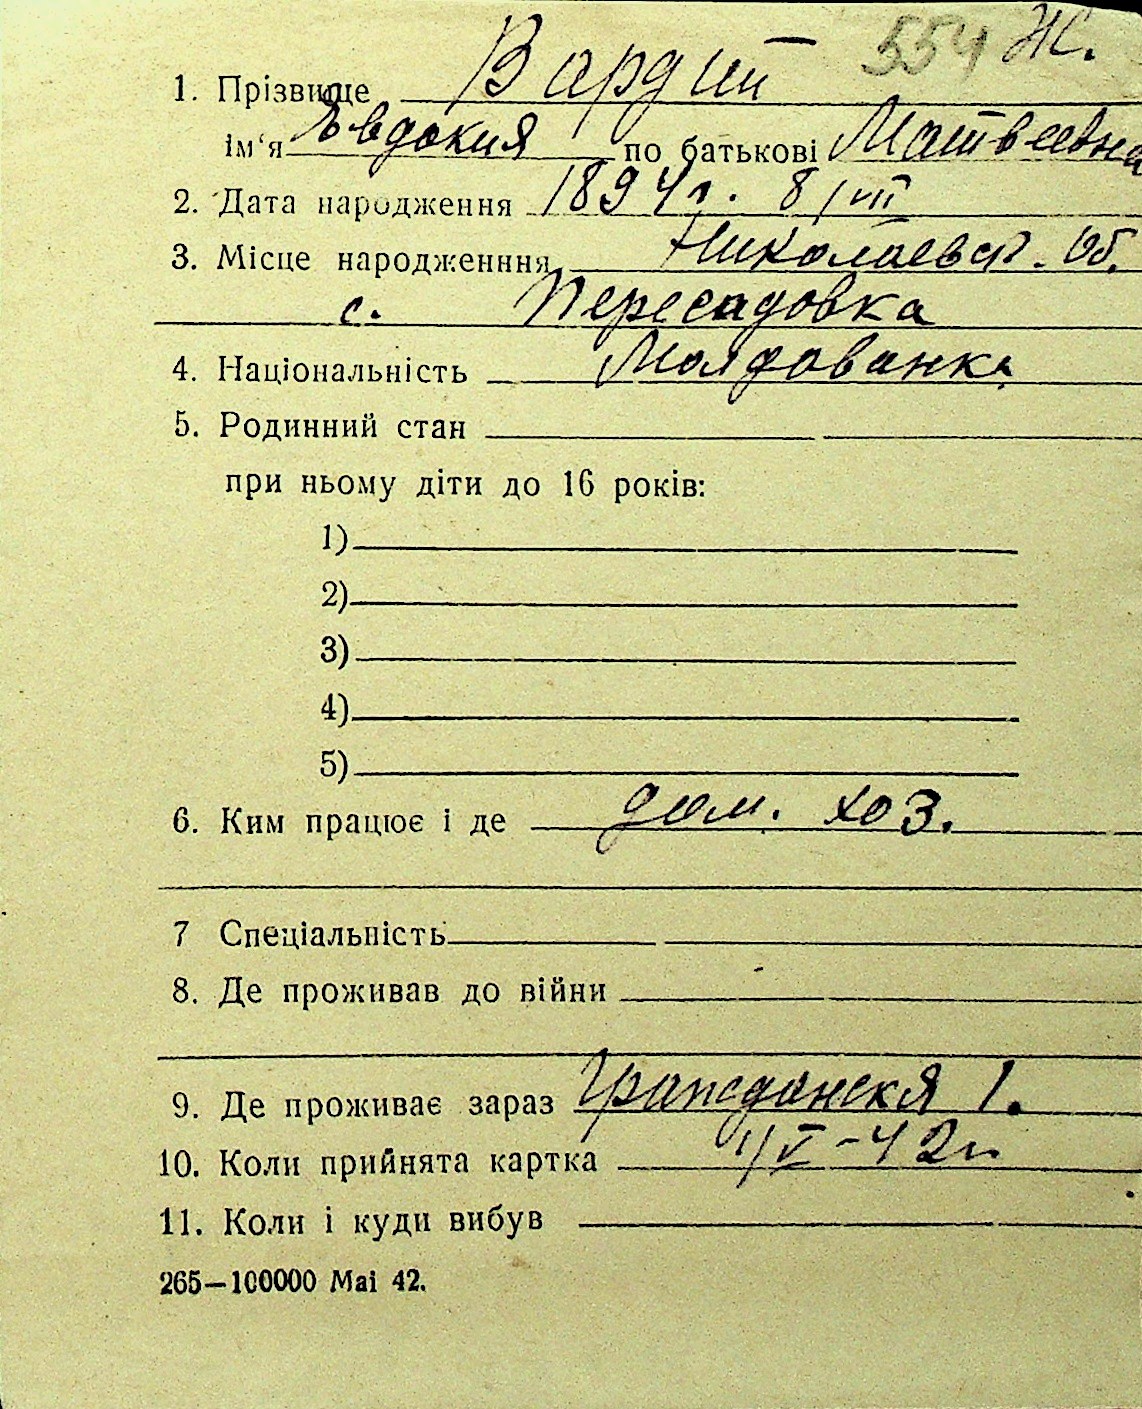 554 Ж.
1. Прізвище Вардий
ім'я Явдокия по батькові Матвеевна
2. Дата народження 1894 г. 8/VII
3. Місце народженння Николаевск. об.
с. Пересадовка
4. Національність Молдованка
5. Родинний стан
при ньому діти до 16 років:
1)
2)
3)
4)
5)
6. Ким працює і де дом. хоз.
7 Спеціальність
8. Де проживав до війни
9. Де проживає зараз Гражданскя 1.
10. Коли прийнята картка V-42г.
11. Коли і куди вибув
265—100000 Mai 42.